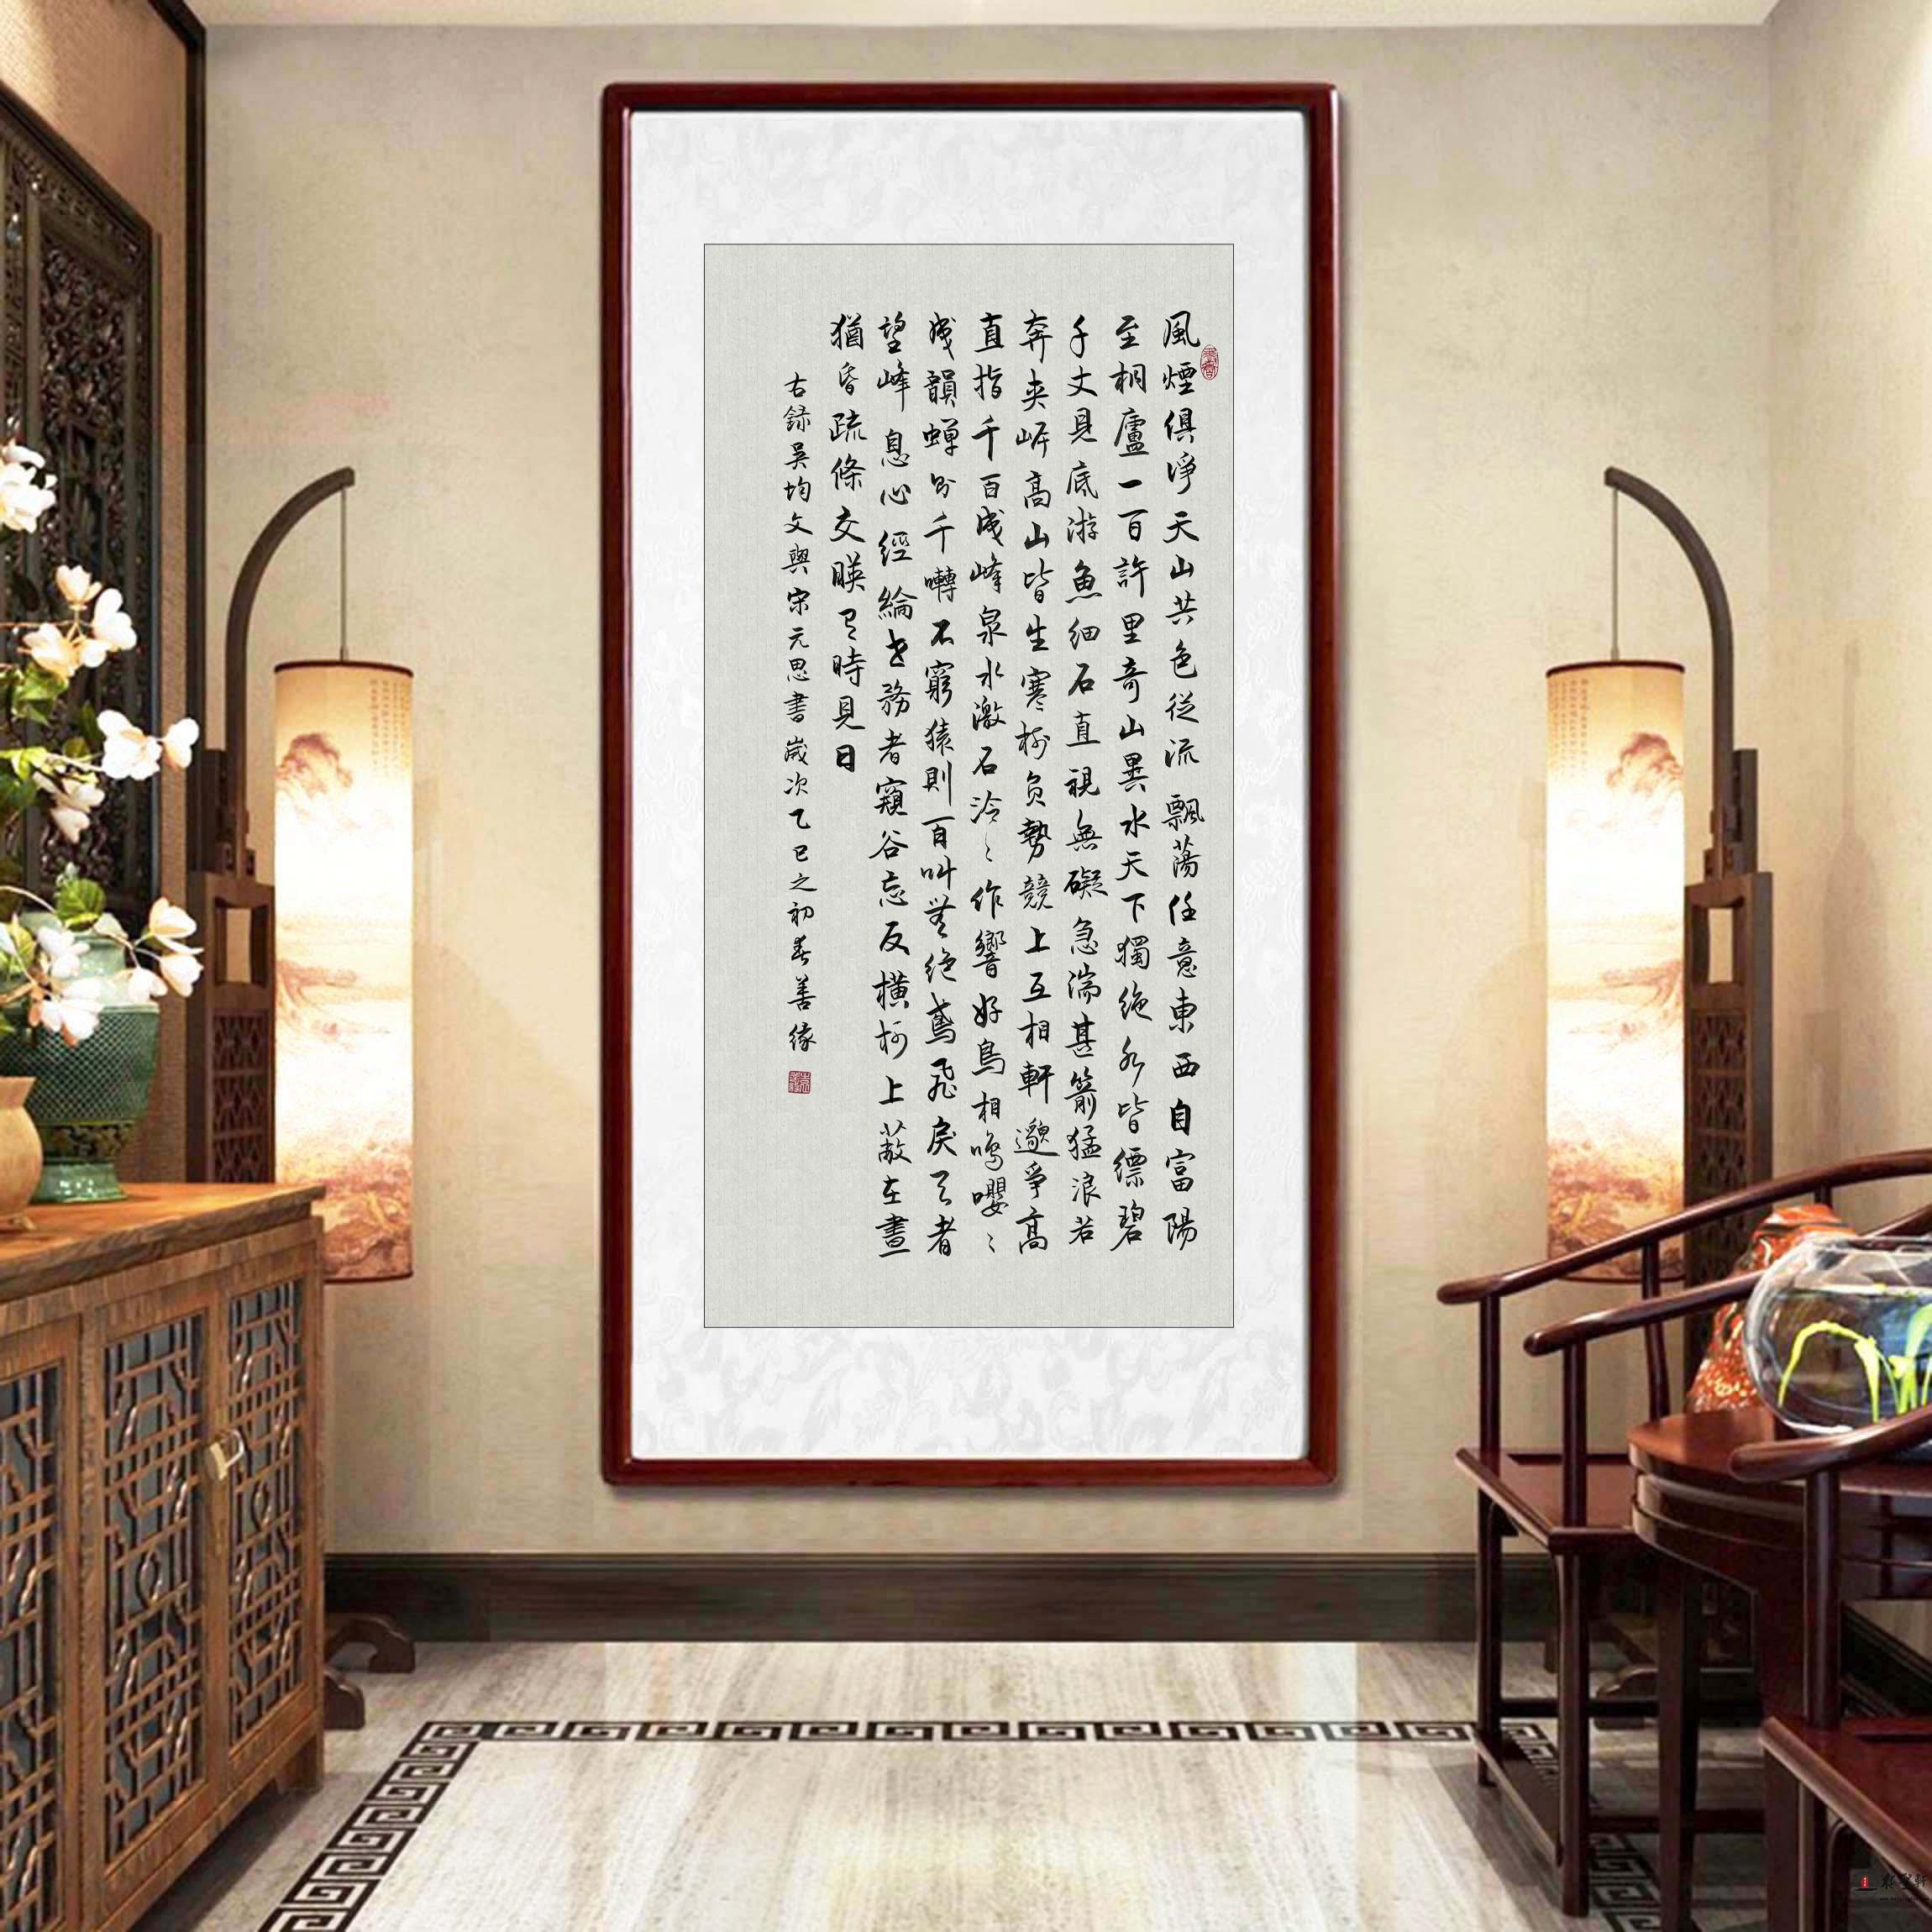 風煙俱淨天山共色從流飄蕩任意東西自富陽
至桐廬一百許里奇山異水天下獨絕水皆縹碧
千丈見底游魚細石直視無礙急湍甚箭猛浪若
奔夾岸高山皆生寒樹負勢競上互相軒邈爭高
直指千百成峰泉水激石泠〻作響好鳥相鳴嚶〻
成韻蟬則千囀不窮猿則百叫無絕鳶飛戾天者
望峰息心經綸世務者窺谷忘反橫柯上蔽在晝
猶昏疏條交映有時見日
右録吳均文與宋元思書歲次乙巳之初春善緣